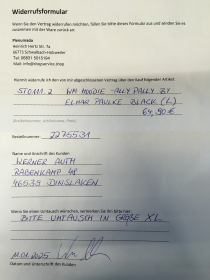 Widerrufsformular
Wenn Sie den Vertrag widerrufen möchten, füllen Sie bitte dieses Formular aus und senden Sie es
zusammen mit der Ware zurück an:
Heinrich Hertz Str. 7a
66773 Schwalbach-Hülzweiler
Hiermit widerrufe ich den von mir abgeschlossenen Vertrag über den Kauf folgender Artikel:
WM HOODIE - ALLY PALLY BY
ELMAR PAULKE BLACK (L)
64,90 €
Bestellnummer: 2275531
Name und Anschrift des Kunden
WERNER AUTH
BABENKAMP 48
46535 DINSLAKEN
Wenn Sie einen Umtausch wünschen, vermerken Sie ihn bitte hier:
BITTE UMTAUSCH IN GRÖßE XL
Datum und Unterschrift des Kunden